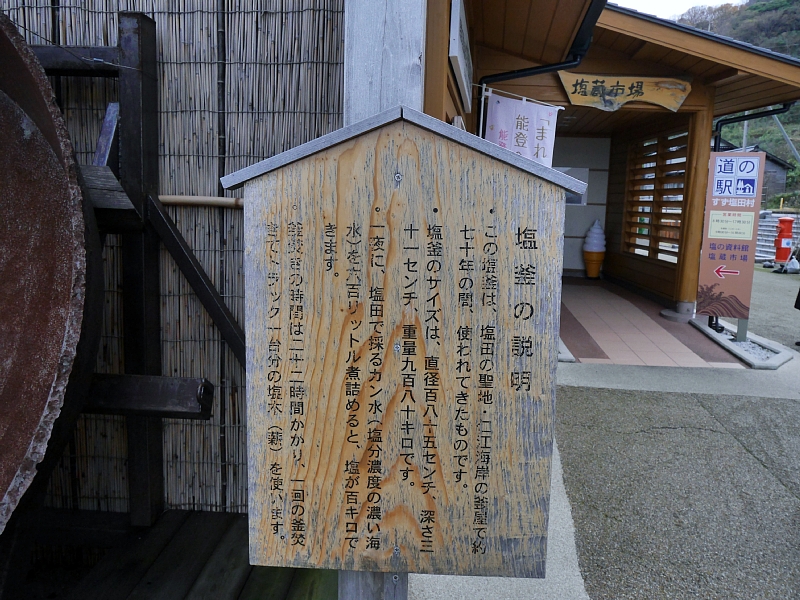 塩釜の説明
・この塩釜は、塩田の聖地・仁江海岸の釜屋で約
七十年の間、使われてきたものです。
・塩釜のサイズは、直径百八十五センチ、深さ三
十一センチ、重量九百八十キロです。
・一夜に、塩田で採るカン水（塩分濃度の濃い海
水）を六百リットル煮詰めると、塩が百キロで
きます。
・釜焚きの時間は二十二時間かかり、一回の釜焚
きで、トラック一台分の塩木（薪）を使います。
塩蔵市場
「まれ
能登
道の駅
すず塩田村
塩の資料館
塩蔵市場